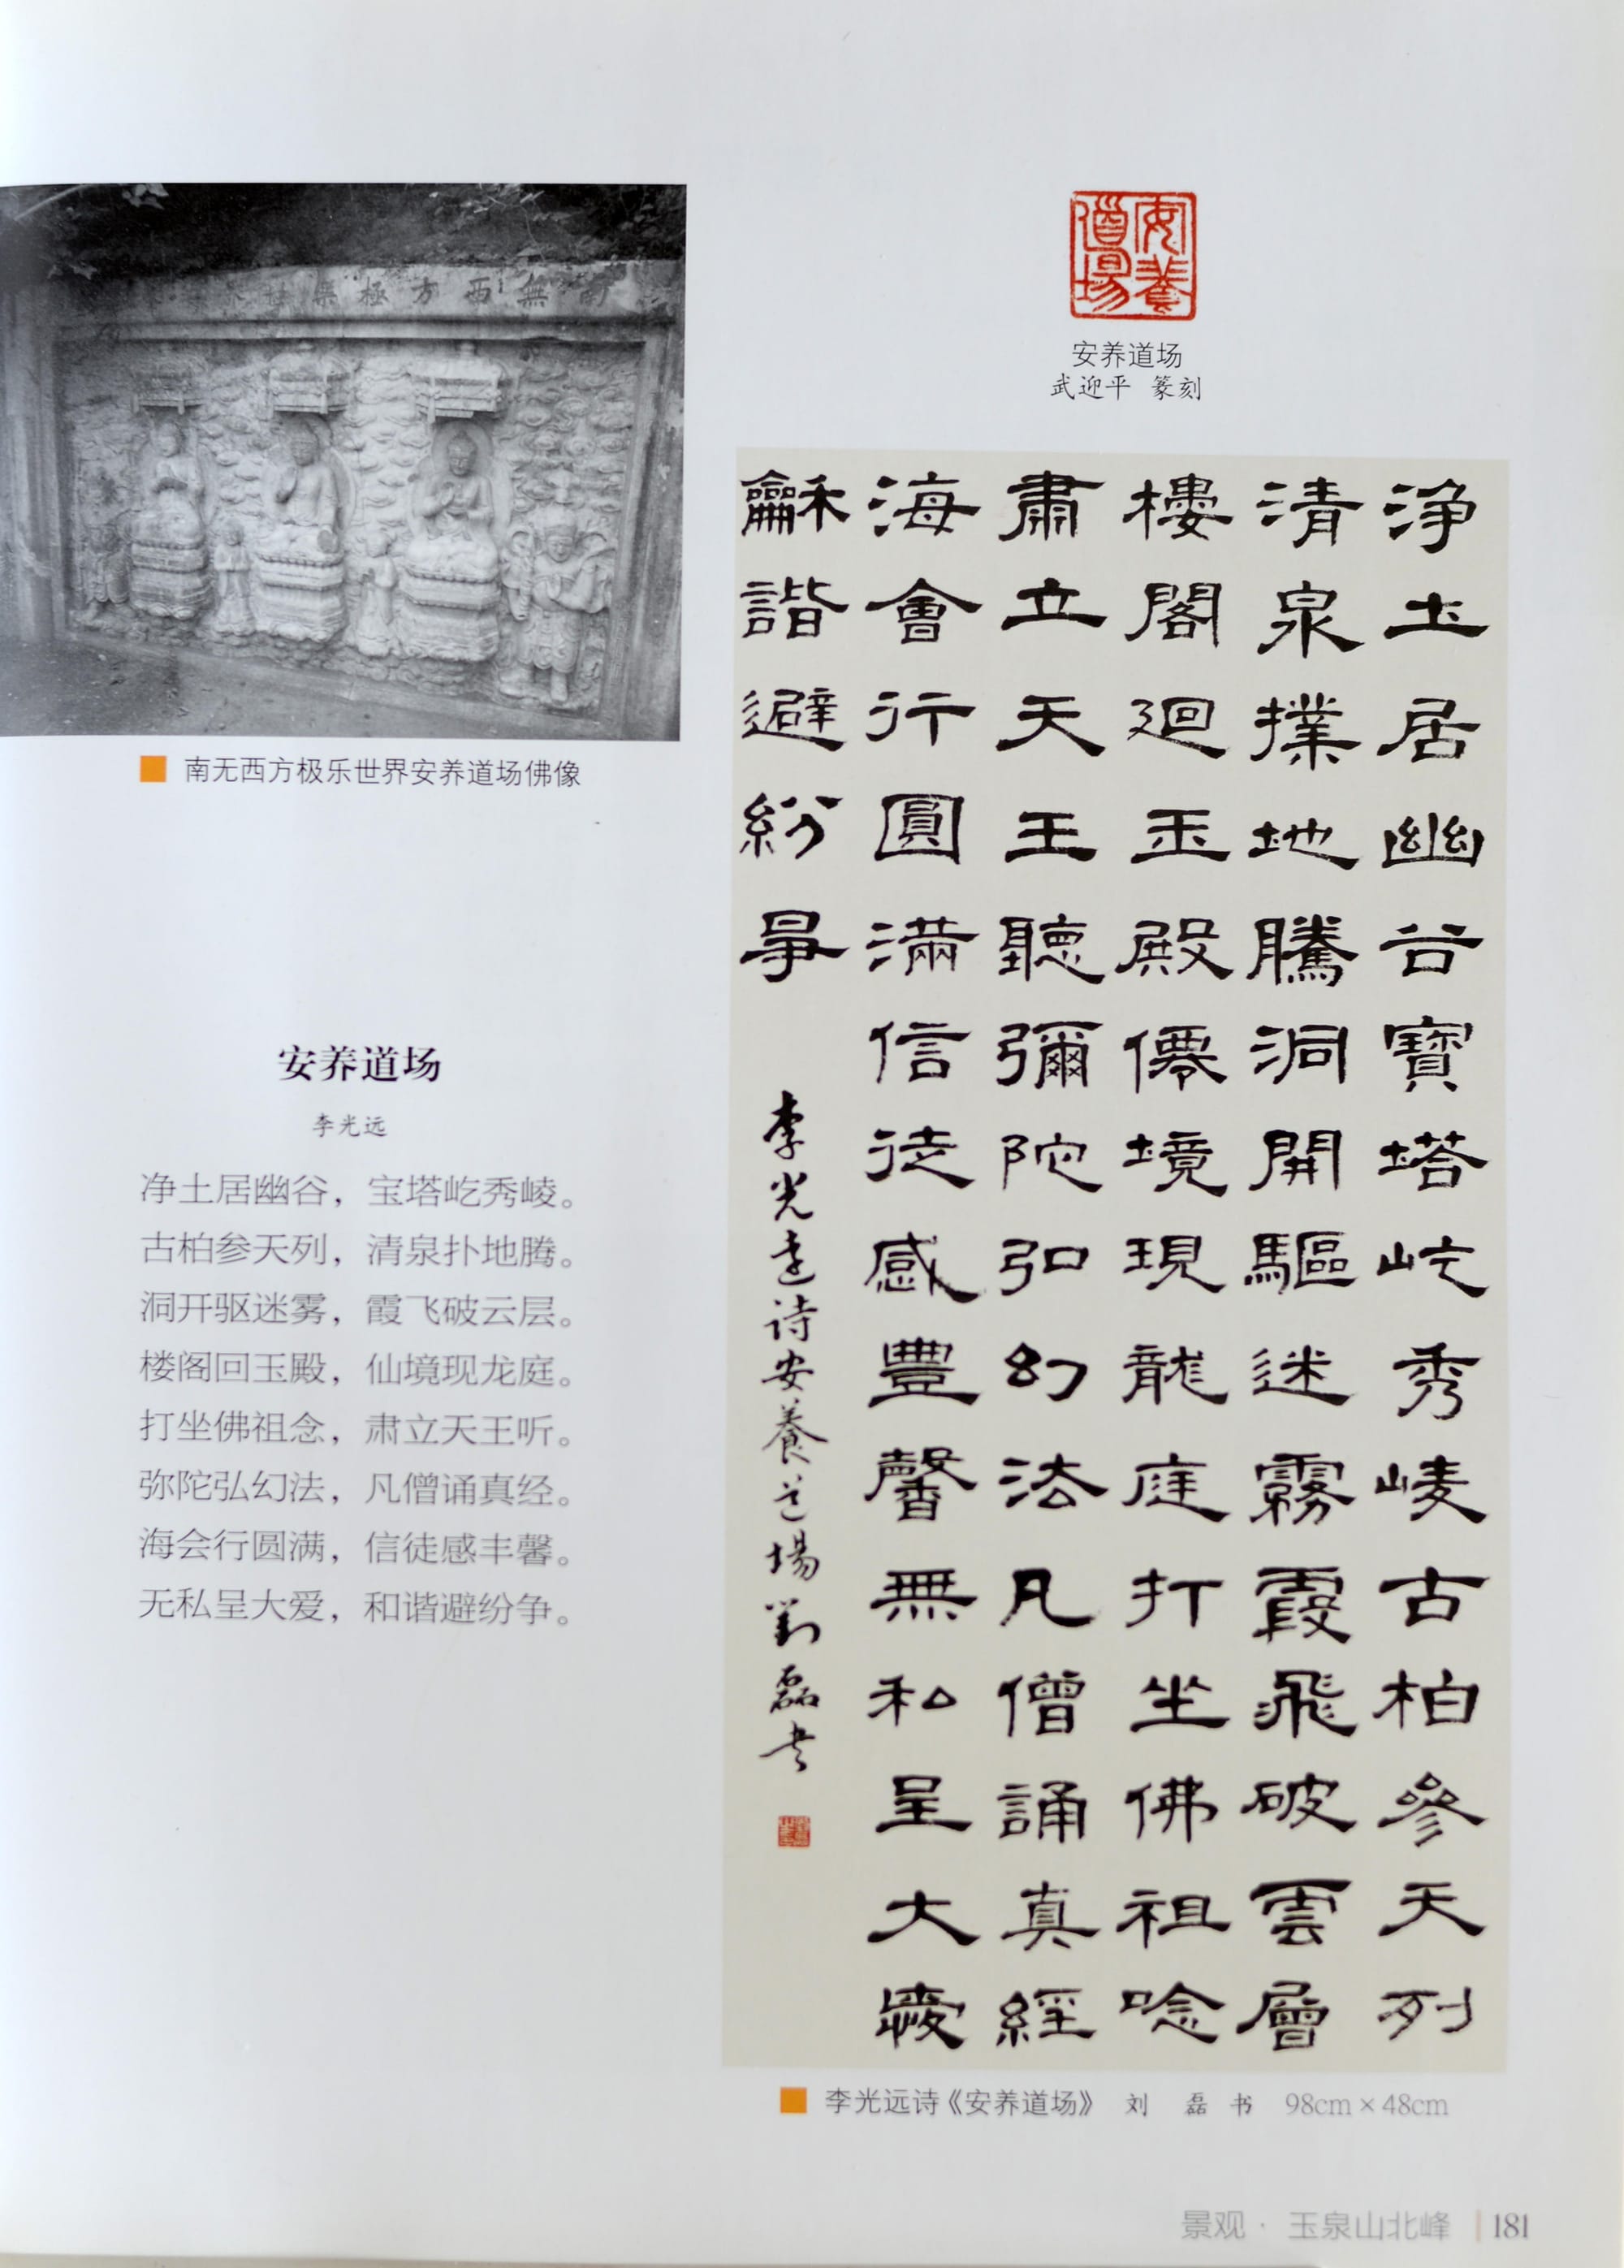 南無西方極樂世界
安養道場
安养道场
武迎平 篆刻
南无西方极乐世界安养道场佛像
安养道场
李光远
净土居幽谷，宝塔屹秀崚。
古柏参天列，清泉扑地腾。
洞开驱迷雾，霞飞破云层。
楼阁回玉殿，仙境现龙庭。
打坐佛祖念，肃立天王听。
弥陀弘幻法，凡僧诵真经。
海会行圆满，信徒感丰馨。
无私呈大爱，和谐避纷争。
淨土居幽谷寶塔屹秀崚古柏參天列
清泉撲地騰洞開驅迷霧霞飛破雲層
樓閣迴玉殿僊境現龍庭打坐佛祖唸
肅立天王聽彌陀弘幻法凡僧誦真經
海會行圓滿信徒感豐馨無私呈大愛
龢諧避紛爭
李光遠诗安養道場劉磊书
李光远诗《安养道场》 刘 磊 书 98cm×48cm
景观· 玉泉山北峰 | 181